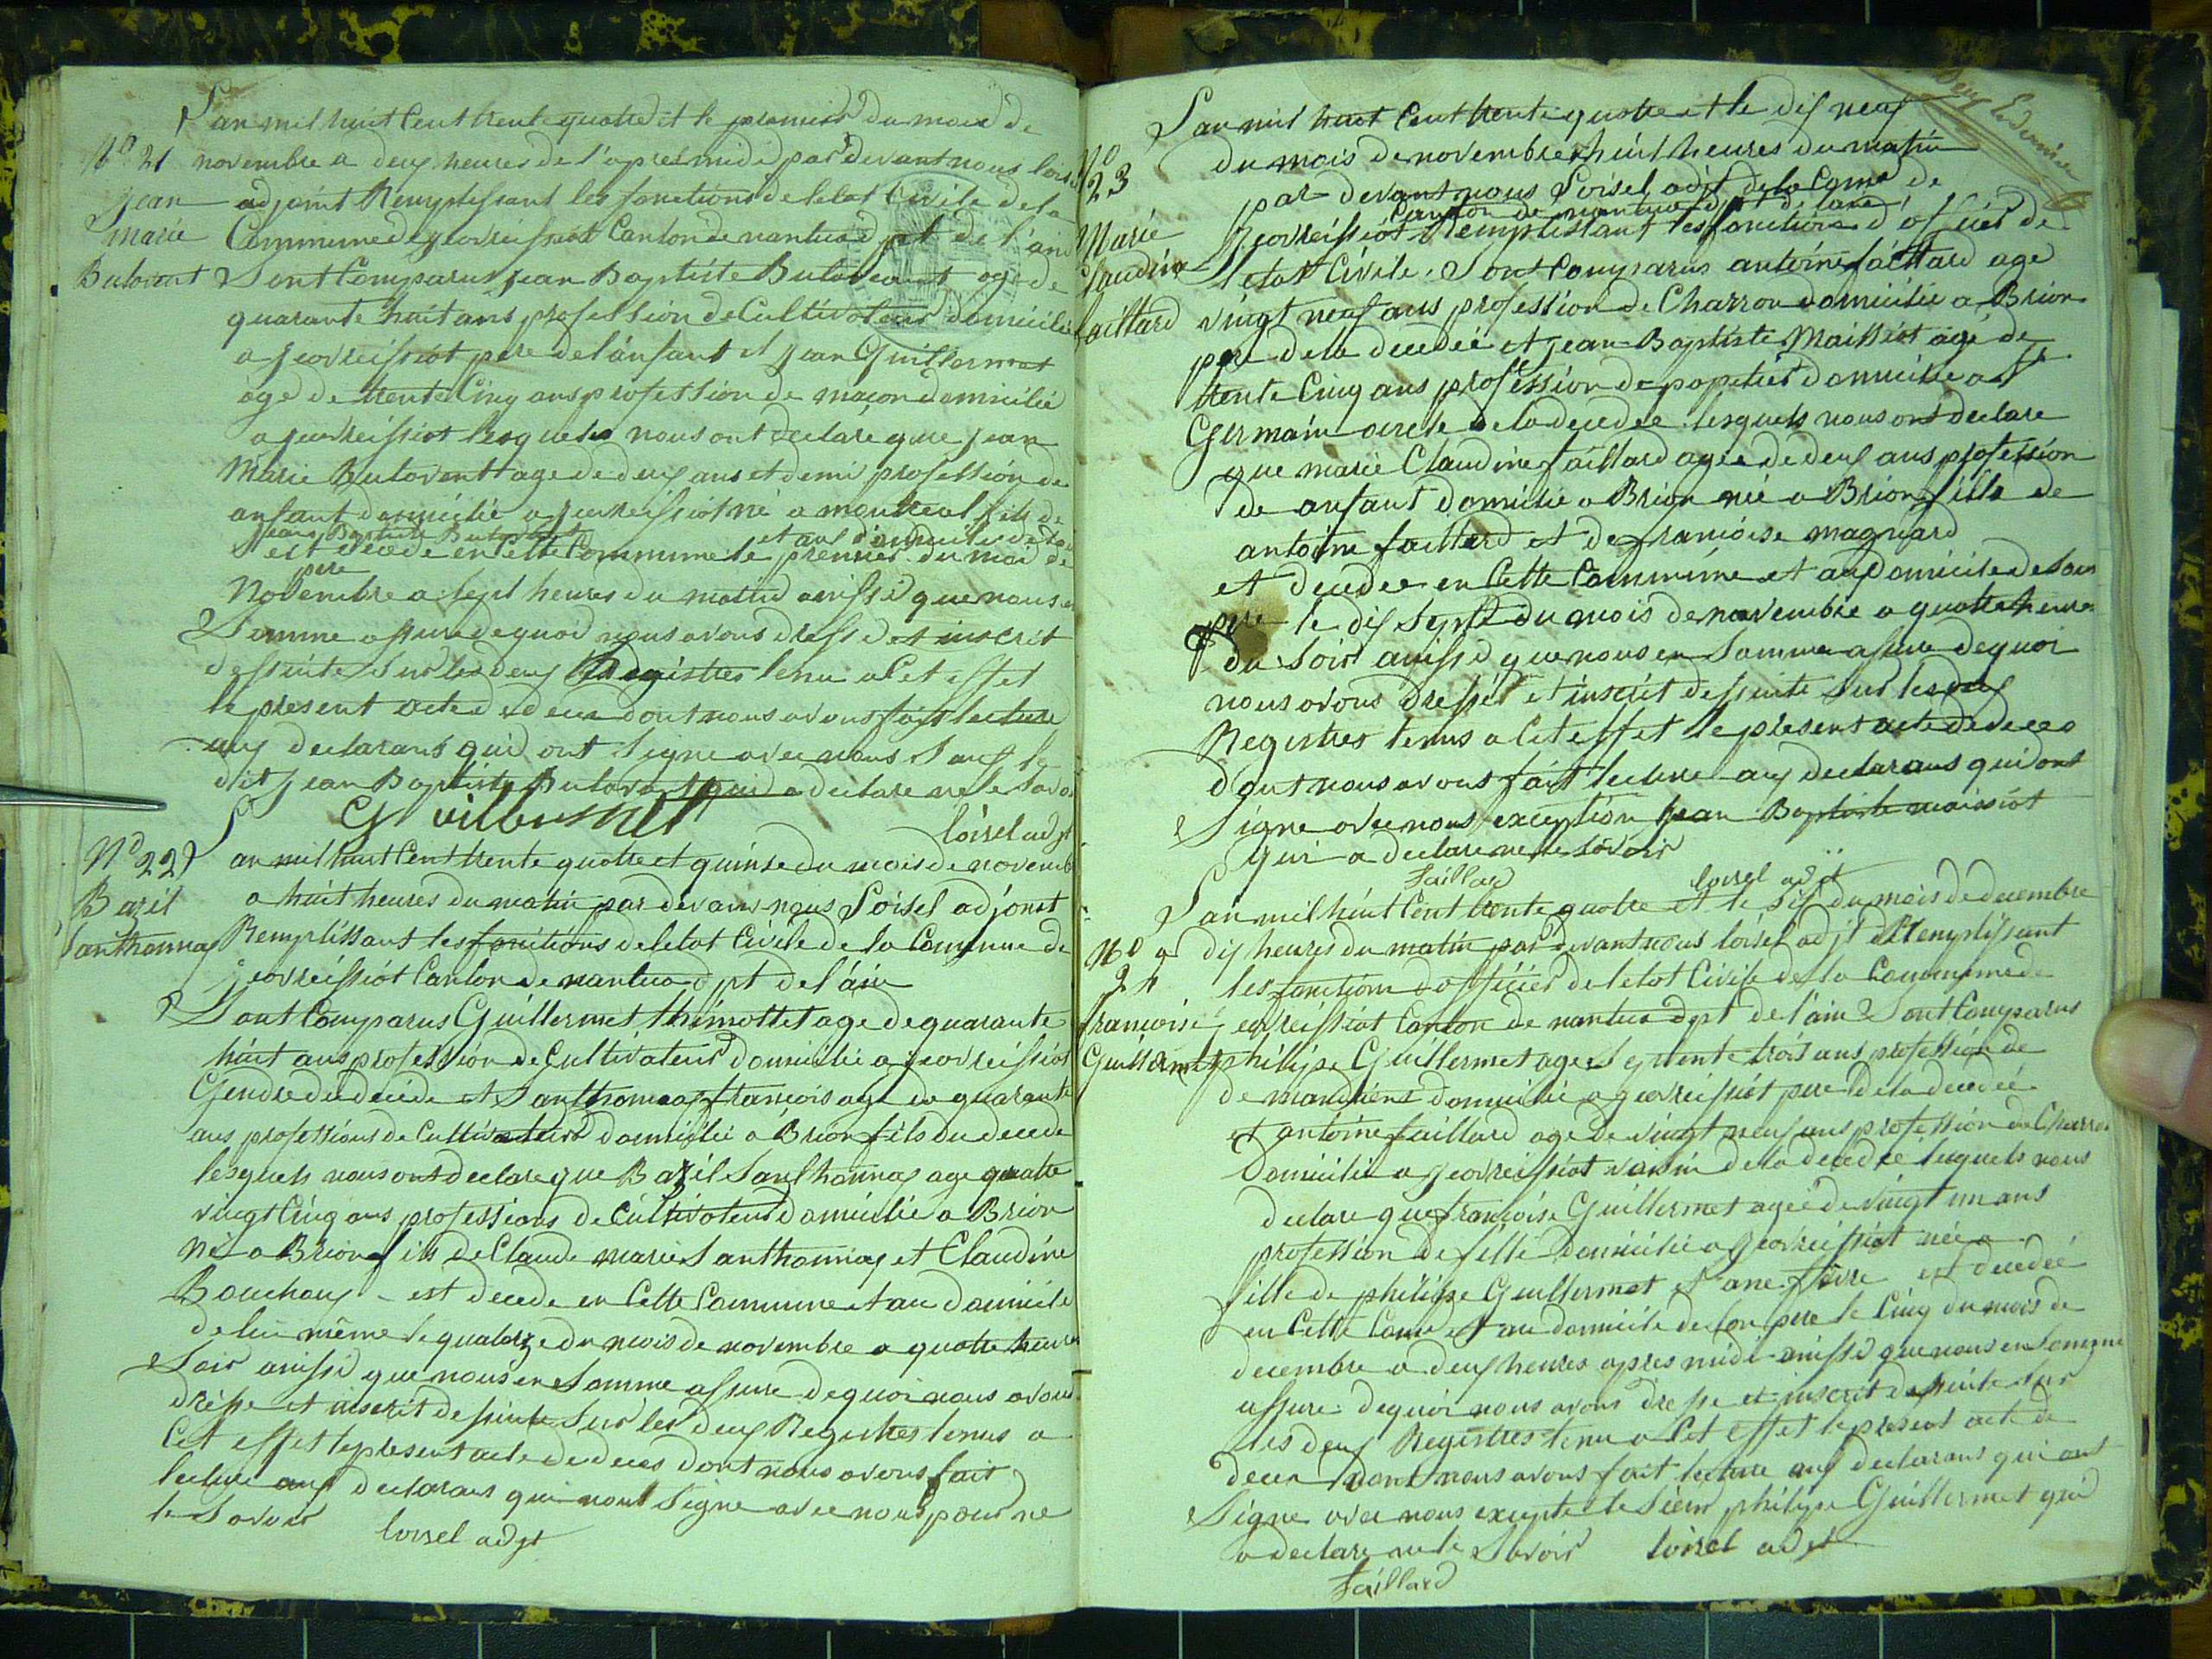 L'an mil huit Cent trente quatre et le premier du mois de
No 21 novembre a deux heures de l'apres midi par devant nous loisel
Jean adjoint Remplissant les fonctions de letat Civile de la
marie Commune de geovreissiat Canton de nantua dpt de l'ain
Butavant Sont Comparus jean Baptiste Butavant age de
quarante huit ans profession de Cultivateur domicilie
a geovreissiat pere de lanfant et jean Guillermet
age de trente Cinq ans profession de maçon domicilié
a geovreissiat lesquels nous ont declaré que jean
Marie Butavent age de deux ans et demi profession de
anfant domicilié a geovreissiat né a montreal fils de
jean Baptiste Butavent et au domicile de son
est decede en Cette Commune le premier du moi de
pere
Novembre a sept heures du matin ainssi que nous en
Somme assure de quoi nous avons dressé et inscrit
dessuite sur les deux Registres tenu a Cet effet
le present acte de deces dont nous avons fait lecture
aux declarans qui ont signe avec nous Sauf le
dit jean Baptiste Butavant qui a declare ne le savoir
Guillermet
loisel adjt
No 22 L'an mil huit Cent trente quatre et quinse du mois de novembre
Bazil a huit heures du matin par devans nous Loisel adjoint
Santhonnax Remplissant les fonctions de letat Civile de la Commune de
geovreissiat Canton de nantua dpt de l'ain
Sont Comparus Guillermet thimottet age de quarante
huit ans profession de Cultivateur domicilie a geovreissiat
Gendre du decide et Santhonnax francois age de quarante
ans professions de Cultivateur domicilié a Brion fils du decede
lesquels nous ont declare que Bazil Santhonnax age quatre
vingt Cinq ans professions de Cultivateur domicilié a Brion
Né a Brion fils de Claude marie Santhonnax et Claudine
Bouchoux - est decede en Cette Commune et au domicile
de lui même le quatorze du mois de novembre a quatre heures
Soir ainssi que nous en Somme assure de quoi nous avons
dresse et inscrit dessuite Sur les deux Registres tenus a
Cet effet le present acte de deces dont nous avons fait
lecture aux declarans qui nont Signe avec nous pour ne
le Savoir loisel adjt
L'an mil huit Cent trente quatre et le dix neuf
No 23 du mois de novembre a huit heures du matin
par devant nous Loisel adjt de la Come de
canton de nantua dpt de lain
Marie Geovreissiat Remplissant les fonctions d'officier de
Claudine l'etat Civile. Sont Comparus antoine faillard age
faillard vingt neuf ans profession de Charron domicilié a Brion
pere de la decedée et jean Baptiste Maissiat agé de
trente Cinq ans profession de papetier domicilié a St
Germain oncle de la decedee lesquels nous ont declare
que marie Claudine faillard agée de deux ans profession
de anfant domicilié a Brion née a Brion fille de
antoine faillard et de françoise magniard
et decedee en Cette Commune et au domicile de son
pere le dix Sept du mois de novembre a quatre heures
du Soir ainssi que nous en Somme assure de quoi
nous avons dressée et inscrit dessuite Sur les deux
Registres tenus a Cet effet le present acte de deces
dont nous avons fait lecture aux declarans qui ont
Signe avec nous exception jean Baptiste maissiat
qui a declare ne le savoir
faillard loisel adjt
L'an mil huit Cent trente quatre et le six du mois de decembre
No 24 a dix heures du matin par devant nous loisel adjt Remplissant
les fonctions d'officier de letat Civile de la Commune de
françoise geovreissiat Canton de nantua dpt de l'ain Sont Comparus
Guillermet philipe Guillermet age Septente trois ans profession de
domicilié a geovreissiat pere de la decedée
et antoine faillard age de vingt neuf ans profession de Charron
Domicilie a geovreissiat voisin de la decedée lesquels nous
declare que françoise Guillermet agée de vingt un ans
profession de fille domicilié a Geovreissiat née a
fille de philipe Guillermet et ane est decedée
en Cette Come et au domicile de son pere le Cinq du mois de
decembre a deux heures apres midi ainssi que nous en Somme
assure. de quoi nous avons dresse et inscrit dessuite Sur
les deux Registres tenu a Cet effet le present acte de
deces dont nous avons fait lecture aux declarans qui ont
Signe avec nous excepte le Sieur philipe Guillermet qui
a declare ne le Savoir loisel adjt
faillard